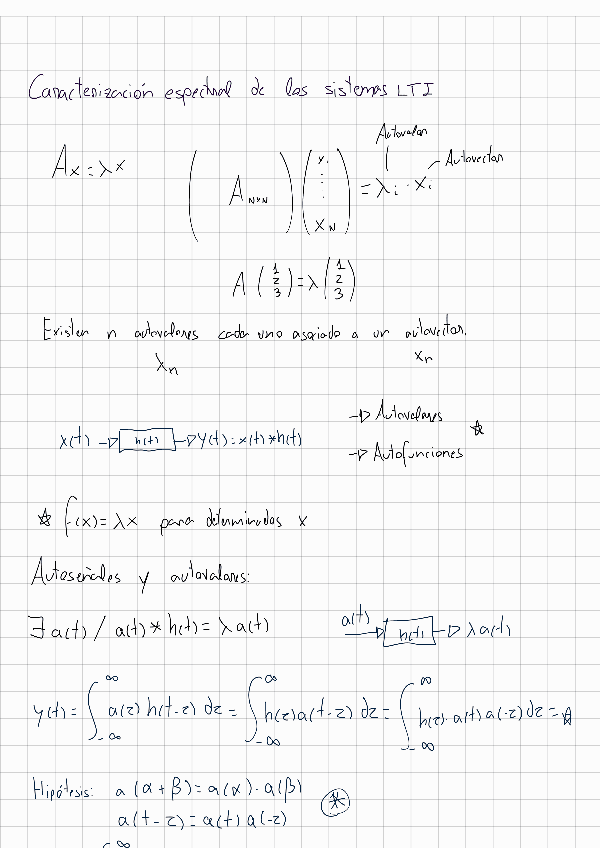 Caracterización espectral de los sistemas LTI
Autovalor
Ax = λx
( A NxN ) ( x₁ ⋮ x_N ) = λᵢ · xᵢ
Autovector
A (1 2 3) = λ (1 2 3)
Existen n autovalores cada uno asociado a un autovector.
λn xn
x(t) → h(t) → y(t) = x(t) * h(t)
→ Autovalores
→ Autofunciones ☆
☆ f(x) = λx para determinados x
Autoseñales y autovalores:
∃ a(t) / a(t) * h(t) = λ a(t)
a(t) → h(t) → λ a(t)
y(t) = ∫_{-∞}^{∞} a(z) h(t-z) dz = ∫_{-∞}^{∞} h(z) a(t-z) dz = ∫_{-∞}^{∞} h(z) · a(t) a(-z) dz = ☆
Hipótesis: a(α + β) = a(α) · a(β)
a(t-z) = a(t) a(-z) ⊛
∞